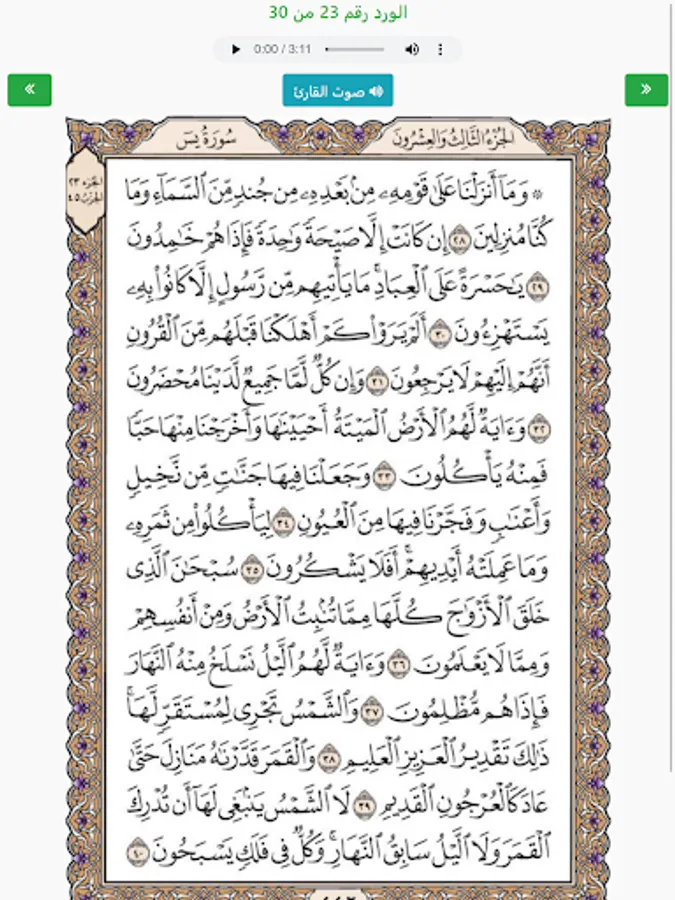 الورد رقم 23 من 30
0:00 / 3:11
« صوت القارئ »
الجزء الثالث والعشرون سورة يس
الجزء ٢٣
الحزب ٤٥
۞ وَمَآ أَنزَلْنَا عَلَىٰ قَوْمِهِۦ مِنۢ بَعْدِهِۦ مِن جُندٍ مِّنَ ٱلسَّمَآءِ وَمَا
كُنَّا مُنزِلِينَ ٢٨ إِن كَانَتْ إِلَّا صَيْحَةً وَٰحِدَةً فَإِذَا هُمْ خَٰمِدُونَ
٢٩ يَٰحَسْرَةً عَلَى ٱلْعِبَادِ ۚ مَا يَأْتِيهِم مِّن رَّسُولٍ إِلَّا كَانُوا۟ بِهِۦ
يَسْتَهْزِءُونَ ٣٠ أَلَمْ يَرَوْا۟ كَمْ أَهْلَكْنَا قَبْلَهُم مِّنَ ٱلْقُرُونِ
أَنَّهُمْ إِلَيْهِمْ لَا يَرْجِعُونَ ٣١ وَإِن كُلٌّ لَّمَّا جَمِيعٌ لَّدَيْنَا مُحْضَرُونَ
٣٢ وَءَايَةٌ لَّهُمُ ٱلْأَرْضُ ٱلْمَيْتَةُ أَحْيَيْنَٰهَا وَأَخْرَجْنَا مِنْهَا حَبًّا
فَمِنْهُ يَأْكُلُونَ ٣٣ وَجَعَلْنَا فِيهَا جَنَّٰتٍ مِّن نَّخِيلٍ
وَأَعْنَٰبٍ وَفَجَّرْنَا فِيهَا مِنَ ٱلْعُيُونِ ٣٤ لِيَأْكُلُوا۟ مِن ثَمَرِهِۦ
وَمَا عَمِلَتْهُ أَيْدِيهِمْ ۖ أَفَلَا يَشْكُرُونَ ٣٥ سُبْحَٰنَ ٱلَّذِى
خَلَقَ ٱلْأَزْوَٰجَ كُلَّهَا مِمَّا تُنۢبِتُ ٱلْأَرْضُ وَمِنْ أَنفُسِهِمْ
وَمِمَّا لَا يَعْلَمُونَ ٣٦ وَءَايَةٌ لَّهُمُ ٱلَّيْلُ نَسْلَخُ مِنْهُ ٱلنَّهَارَ
فَإِذَا هُم مُّظْلِمُونَ ٣٧ وَٱلشَّمْسُ تَجْرِى لِمُسْتَقَرٍّ لَّهَا ۚ
ذَٰلِكَ تَقْدِيرُ ٱلْعَزِيزِ ٱلْعَلِيمِ ٣٨ وَٱلْقَمَرَ قَدَّرْنَٰهُ مَنَازِلَ حَتَّىٰ
عَادَ كَٱلْعُرْجُونِ ٱلْقَدِيمِ ٣٩ لَا ٱلشَّمْسُ يَنۢبَغِى لَهَآ أَن تُدْرِكَ
ٱلْقَمَرَ وَلَا ٱلَّيْلُ سَابِقُ ٱلنَّهَارِ ۚ وَكُلٌّ فِى فَلَكٍ يَسْبَحُونَ ٤٠